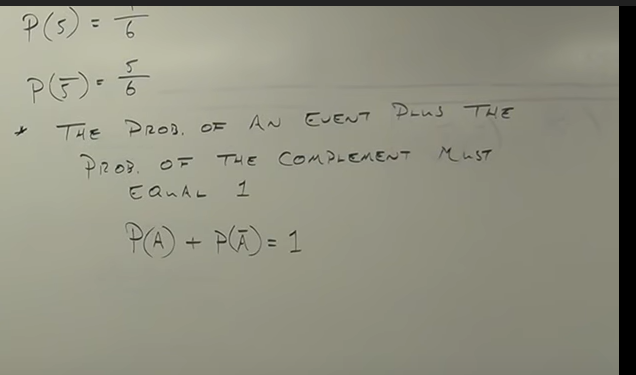 P(5) = 1/6
P(5̅) = 5/6
* THE PROB. OF AN EVENT PLUS THE
PROB. OF THE COMPLEMENT MUST
EQUAL 1
P(A) + P(A̅) = 1